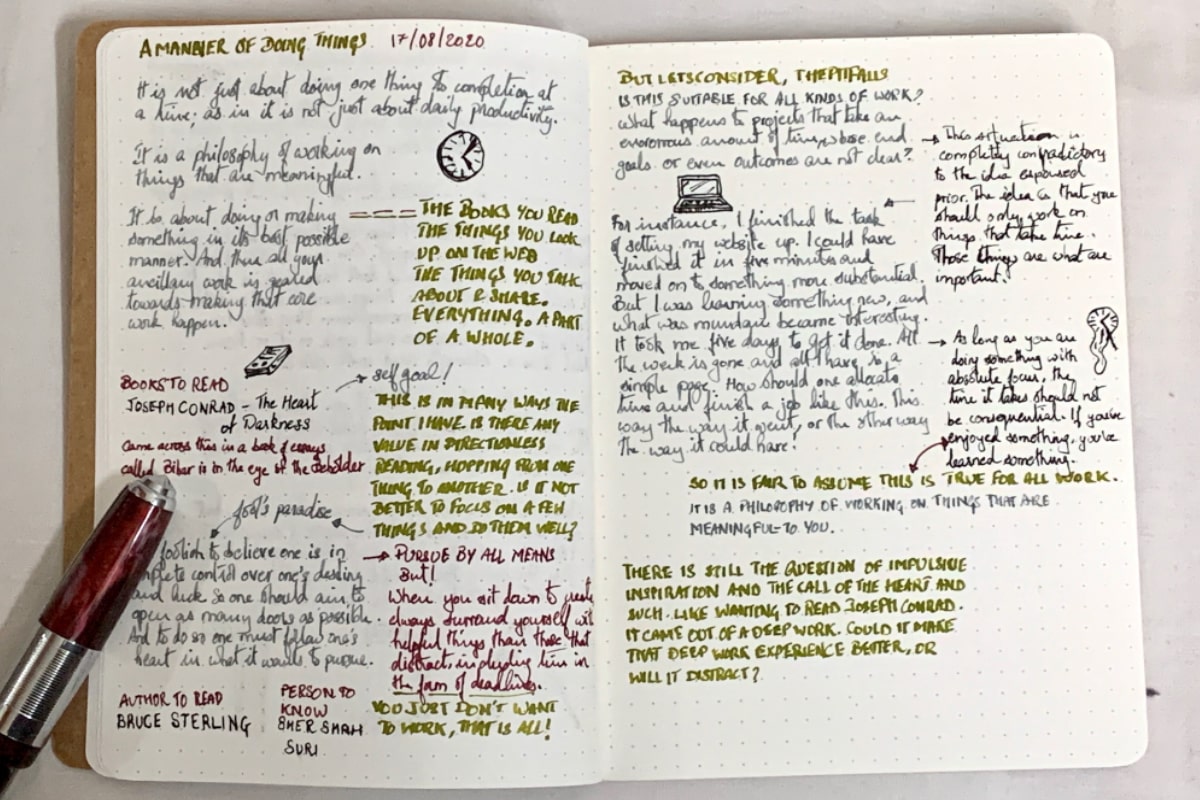 A MANNER OF DOING THINGS 17/08/2020
It is not just about doing one thing to completion at
a time; as in it is not just about daily productivity.
It is a philosophy of working on
things that are meaningful.
It is about doing or making
something in its best possible
manner. And then all your
ancillary work is geared
towards making that core
work happen.
THE BOOKS YOU READ
THE THINGS YOU LOOK
UP ON THE WEB
THE THINGS YOU TALK
ABOUT & SHARE.
EVERYTHING. A PART
OF A WHOLE.
BOOKS TO READ
JOSEPH CONRAD - The Heart
of Darkness
Came across this in a book of essays
called Bihar is in the eye of the beholder
self goal!
THIS IS IN MANY WAYS THE
POINT I HAVE. IS THERE ANY
VALUE IN DIRECTIONLESS
READING, HOPPING FROM ONE
THING TO ANOTHER. IS IT NOT
BETTER TO FOCUS ON A FEW
THINGS AND DO THEM WELL?
fool's paradise
foolish to believe one is in
complete control over one's destiny
and luck so one should aim to
open as many doors as possible.
And to do so one must follow one's
heart in what it wants to pursue.
PURSUE BY ALL MEANS
But!
When you sit down to create
always surround yourself with
helpful things than those that
distract, including time in
the form of deadlines.
YOU JUST DON'T WANT
TO WORK, THAT IS ALL!
AUTHOR TO READ
BRUCE STERLING
PERSON TO
KNOW
SHER SHAH
SURI
BUT LETS CONSIDER, THE PITFALLS
IS THIS SUITABLE FOR ALL KINDS OF WORK?
What happens to projects that take an
enormous amount of time, whose end
goals or even outcomes are not clear?
This situation is
completely contradictory
to the idea espoused
prior. The idea is that you
should only work on
things that take time.
Those things are what are
important.
For instance, I finished the task
of setting my website up. I could have
finished it in five minutes and
moved on to something more substantial.
But I was learning something new, and
what was mundane became interesting.
It took me five days to get it done. All
the work is gone and all I have is a
simple page. How should one allocate
time and finish a job like this. This
way the way it went, or the other way
the way it could have!
As long as you are
doing something with
absolute focus, the
time it takes should not
be consequential. If you've
enjoyed something, you've
learned something.
SO IT IS FAIR TO ASSUME THIS IS TRUE FOR ALL WORK.
IT IS A PHILOSOPHY OF WORKING ON THINGS THAT ARE
MEANINGFUL TO YOU.
THERE IS STILL THE QUESTION OF IMPULSIVE
INSPIRATION AND THE CALL OF THE HEART AND
SUCH. LIKE WANTING TO READ JOSEPH CONRAD.
IT CAME OUT OF A DEEP WORK. COULD IT MAKE
THAT DEEP WORK EXPERIENCE BETTER, OR
WILL IT DISTRACT?